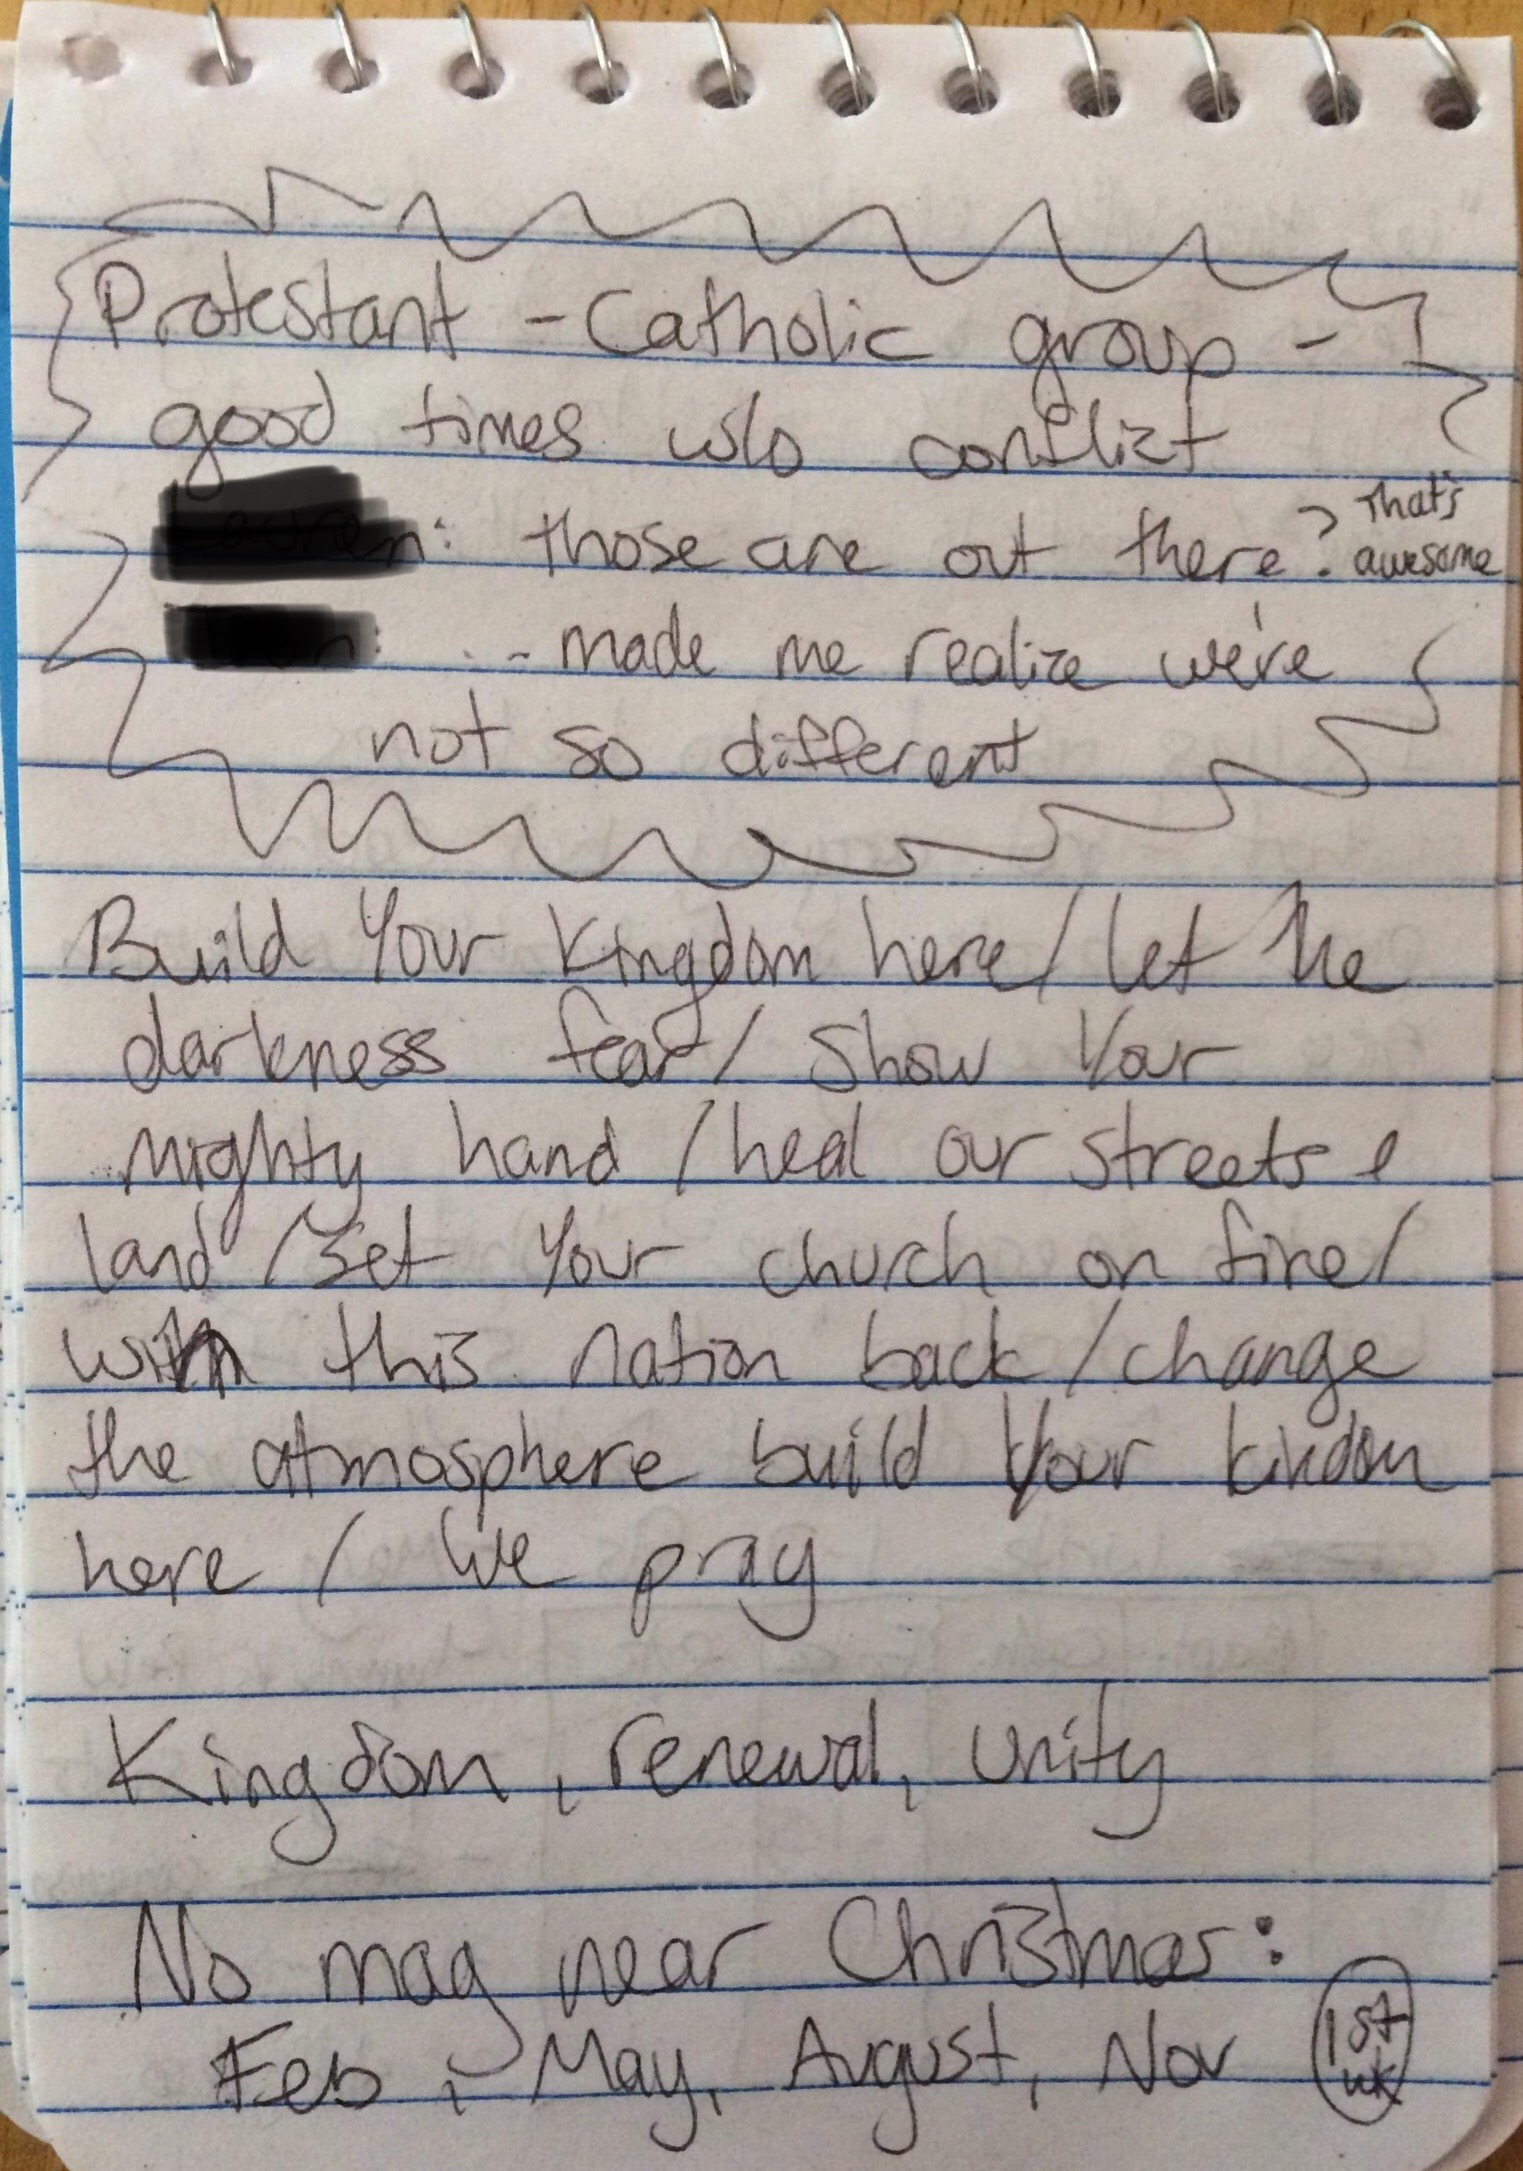 Protestant - Catholic group -
good times w/o conflict
: those are out there? That's awesome
: ... made me realize we're
not so different
Build Your Kingdom here / let the
darkness fear / show Your
mighty hand / heal our streets &
land / set Your church on fire /
win this nation back / change
the atmosphere build Your kindom
here / We pray
Kingdom, renewal, unity
No mag near Christmas:
Feb, May, August, Nov 1st wk